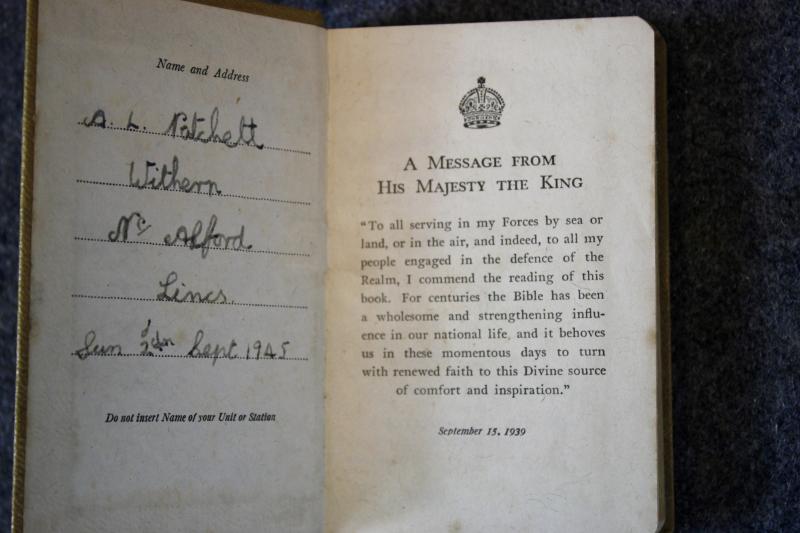 Name and Address
A. L. Patchett
Withern
Nr Alford
Lincs.
Sun 2dn Sept 1945
Do not insert Name of your Unit or Station
A Message from
His Majesty the King
"To all serving in my Forces by sea or
land, or in the air, and indeed, to all my
people engaged in the defence of the
Realm, I commend the reading of this
book. For centuries the Bible has been
a wholesome and strengthening influ-
ence in our national life, and it behoves
us in these momentous days to turn
with renewed faith to this Divine source
of comfort and inspiration."
September 15, 1939